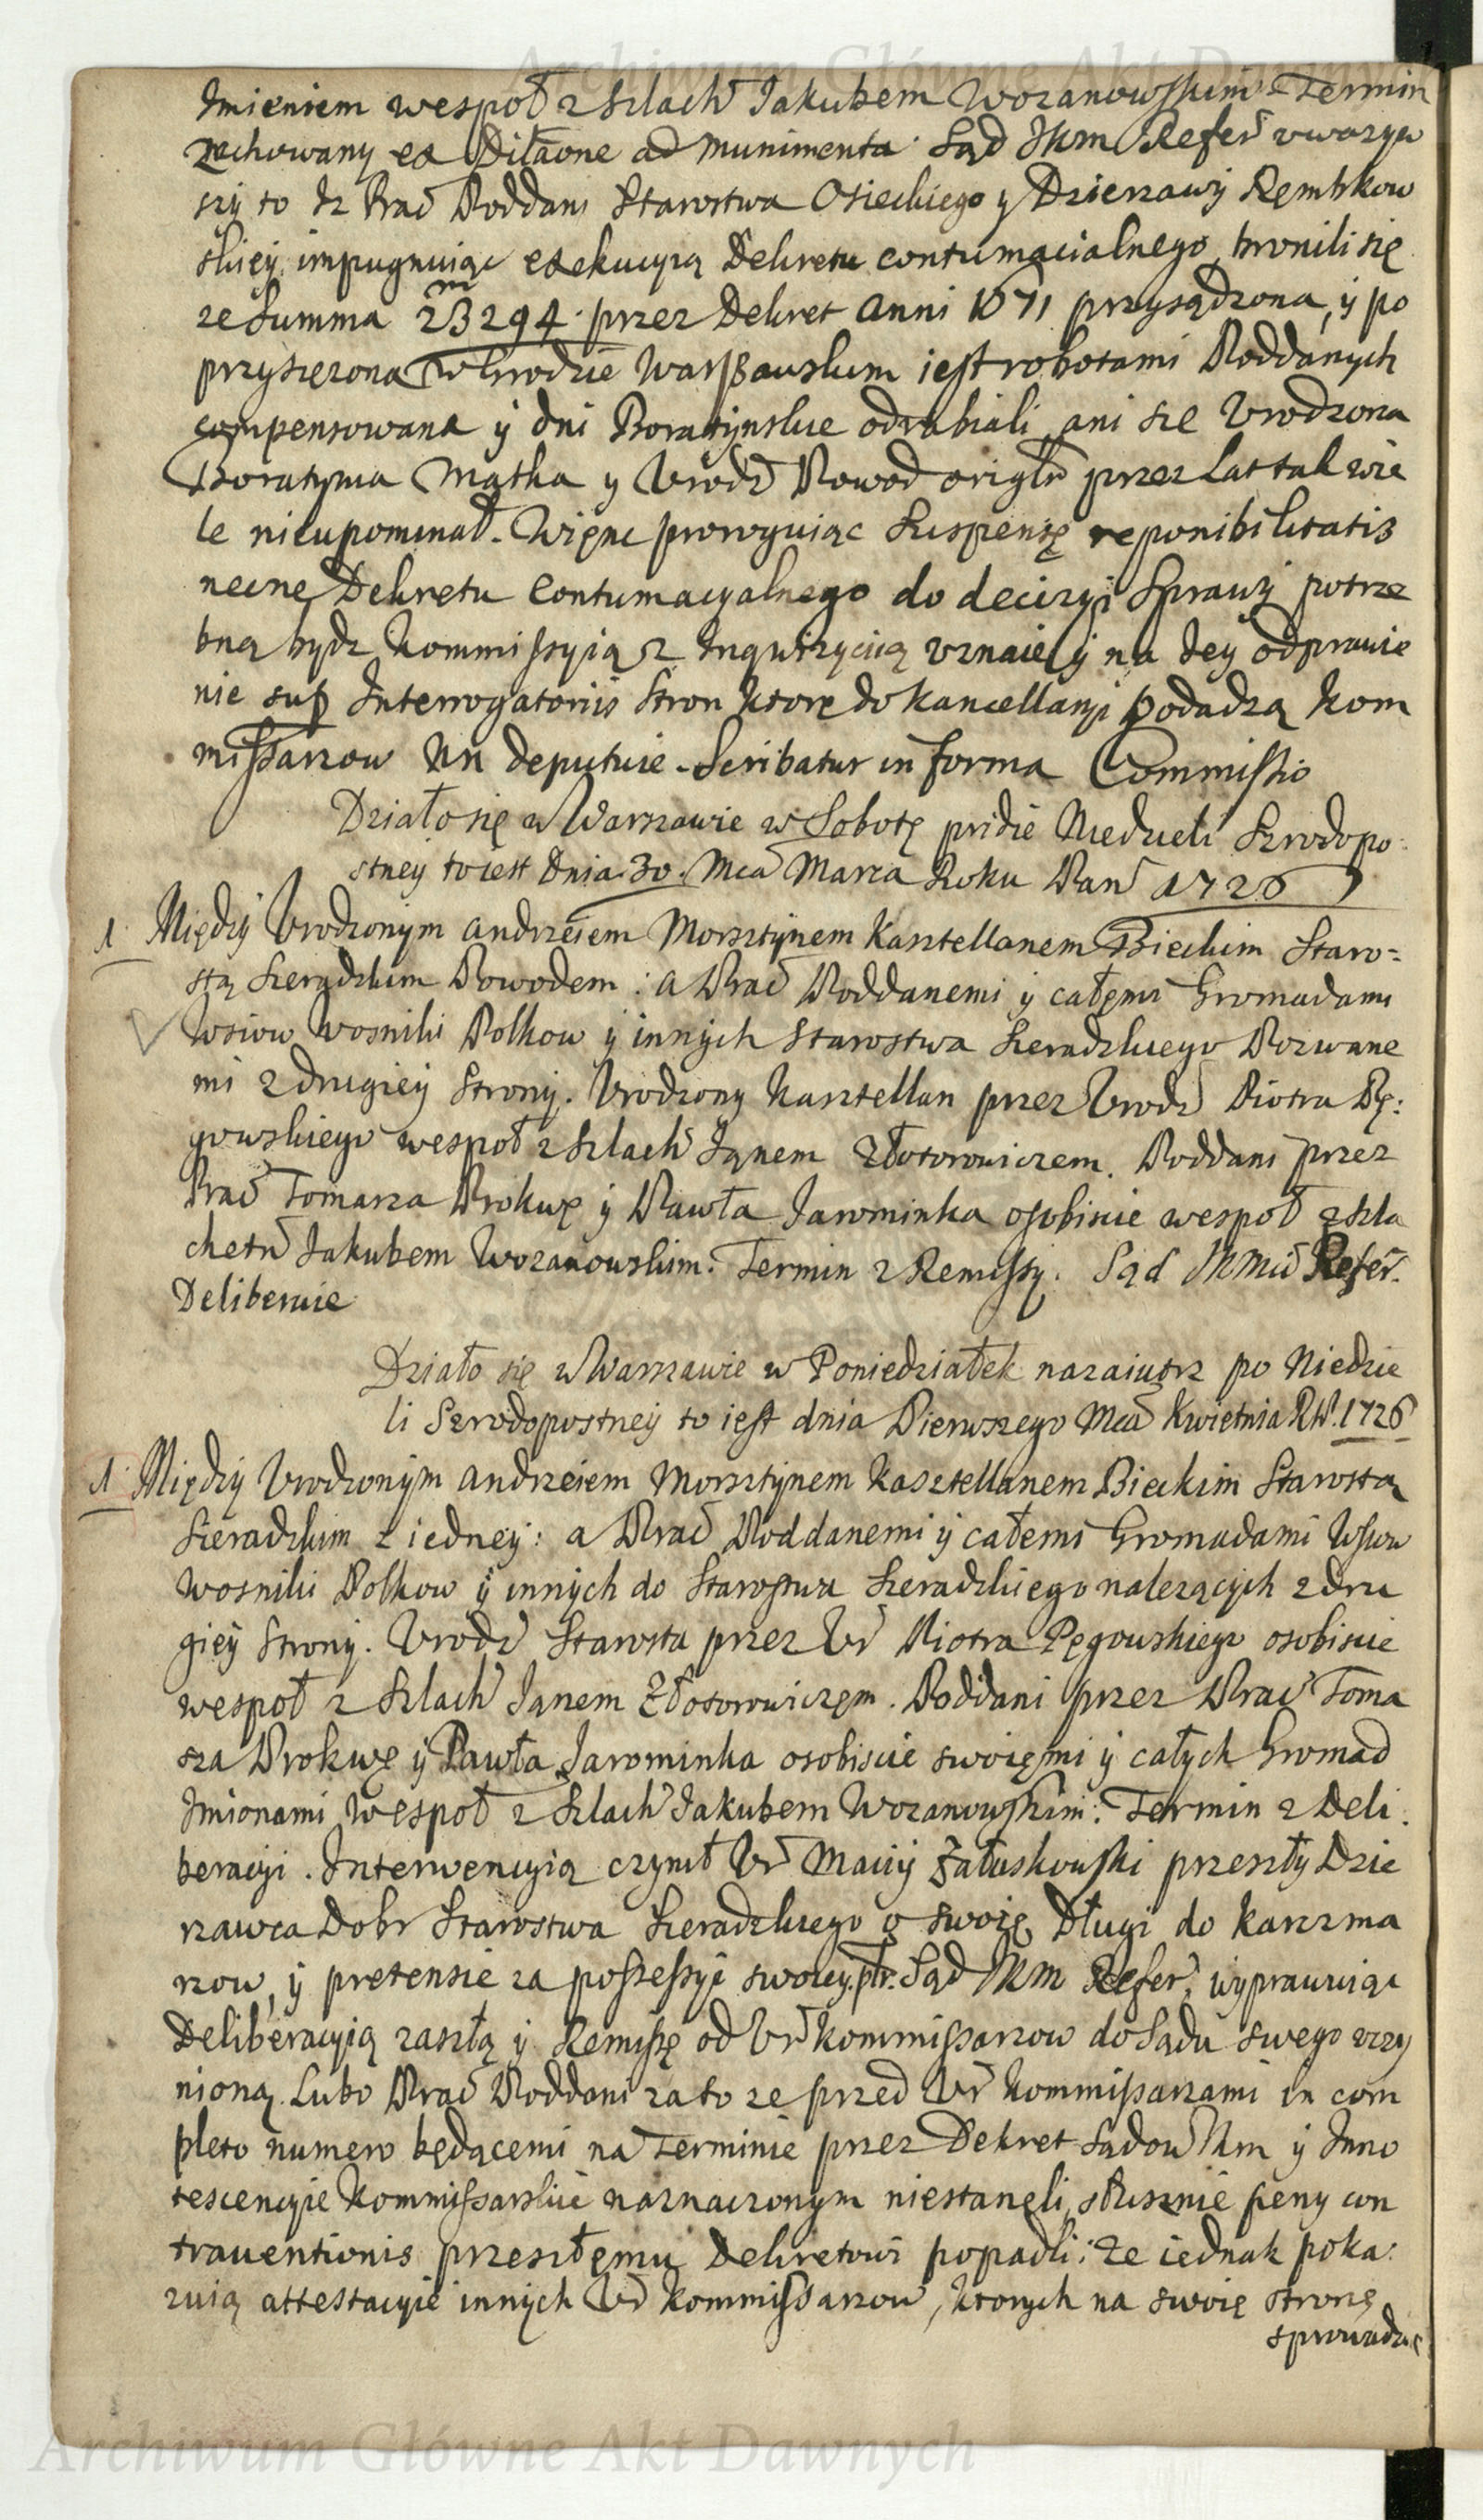 Archiwum Główne Akt Dawnych
Imieniem wespoł z Szlach Jakubem Wozanowskim Termin
zachowany ex Dilaone ad munimenta. Sąd JKm Refer uwazyw
szy to iz Prac Poddani Starostwa Osieckiego y Dzierzawy Rembkow
skiey, impugnuiąc exekucyią Dekretu contumacialnego, bronili się
ze Summa 23294 przez Dekret Anni 1671 przysądzona, y po
przysięzona w Grodzie Warszawskim iest robotami Poddanych
compensowana y dni Boratynskie odrabiali, ani sie Urodzona
Boratynia Matka y Urodz Powod origlr przez Lat tak wie
le nieupominał. Więnc proroguiąc Suspensę reponibilitatis
necne Dekretu Contumacyalnego do decizyi Sprawy potrze
bną bydz Kommissyią z Inqwizycią uznaie y na Iey odprawie
nie sup Interrogatoriis Stron ktore do kancellaryi podadzą Kom
missarzow NN deputuie. Scribatur in forma Commissio
Działo się w Warszawie w Sobotę pridie Niedzieli Szrodopo
stney to iest Dnia 30. Mca Marca Roku Pan 1726
1 Między Urodzonym Andrzeiem Morsztynem Kasztellanem Bieckim Staro=
stą Sieradzkim Powodem: a Prac Poddanemi y całemi Gromadami
Wsiow Wosniki Polkow y innych Starostwa Sieradzkiego Pozwane
mi z drugiey Strony. Urodzony Kasztellan przez Urodz Piotra Pę:
gowskiego wespoł z Szlach Janem Złotorowiczem. Poddani przez
Prac Tomasza Prokwę y Pawła Jarominka osobiscie wespoł z Szla
chetn Jakubem Wozanowskim. Termin z Remissy. Sąd JKMci Refer.
Deliberuie
Działo się w Warszawie w Poniedziałek nazaiutrz po Niedzie
li Szrodopostney to iest dnia Pierwszego Mca Kwietnia RP. 1726
1. Między Urodzonym Andrzeiem Morsztynem Kasztellanem Bieckim Starostą
Sieradzkim z iedney: a Prac Poddanemi y całemi Gromadami Wsiow
Wosniki Polkow y innych do Starostwa Sieradzkiego nalezących z dru
giey Strony. Urodz Starosta przez Ur Piotra Pęgowskiego osobiscie
wespoł z Szlach Janem Złotorowiczem. Poddani przez Prac Toma
sza Prokwę y Pawła Jarominka osobiscie swoięmi y całych Gromad
Imionami wespoł z Szlach Jakubem Wozanowskim. Termin z Deli
beracyi. Interwencyią czynił Ur Maciy Załuskowski przeszły Dzie
rzawca Dobr Starostwa Sieradzkiego o swoię Długi do karczma
rzow, y pretensie za possessyi swoiey. ptr. Sąd JKm Refer, wyprawuiąc
Deliberacyią zaszłą y Remissę od Ur Kommissarzow do Sądu swego uczy
nioną. Lubo Prac Poddani za to ze przed Ur Kommissarzami in com
pleto numero będącemi na Terminie przez Dekret Sądow JKm y Inno
tescencyie Kommissarskie naznaczonym niestaneli, słusznie peny con
traventionis przeszłemu Dekretowi popadli: ze iednak poka
zuią attestacyie innych Ur Kommissarzow, ktorych na swoię stronę
sprowadzi
Archiwum Główne Akt Dawnych